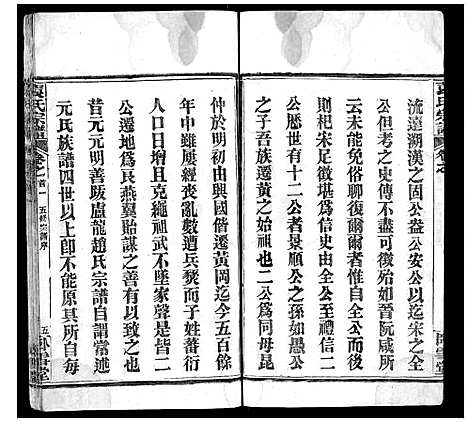 袁氏宗譜卷之
流遠溯漢之固公益公安公以迄宋之全
公但考之史傳不盡可稽如晉阮咸所
云未能免俗聊復爾爾者也自全公而後
則杞宋足徵堪為信史由全公禮信二
公歷世有十二公者景順公諱愚公
之子吾族遷黃之始祖也二公為同母昆
仲於明初由興國偕遷黃岡迄今五百餘
年中雖屢經喪亂數遭兵燹而子姓蕃衍
人口日增且克繩祖武不墜家聲是皆二
公遷地為良燕翼貽謀之善有以致之也
昔元元明善跋盧龍趙氏宗譜自謂常述
元氏族譜四世以上卽不能原其所自每
袁氏宗譜卷之首一
五修宗譜序
五
臥雪堂